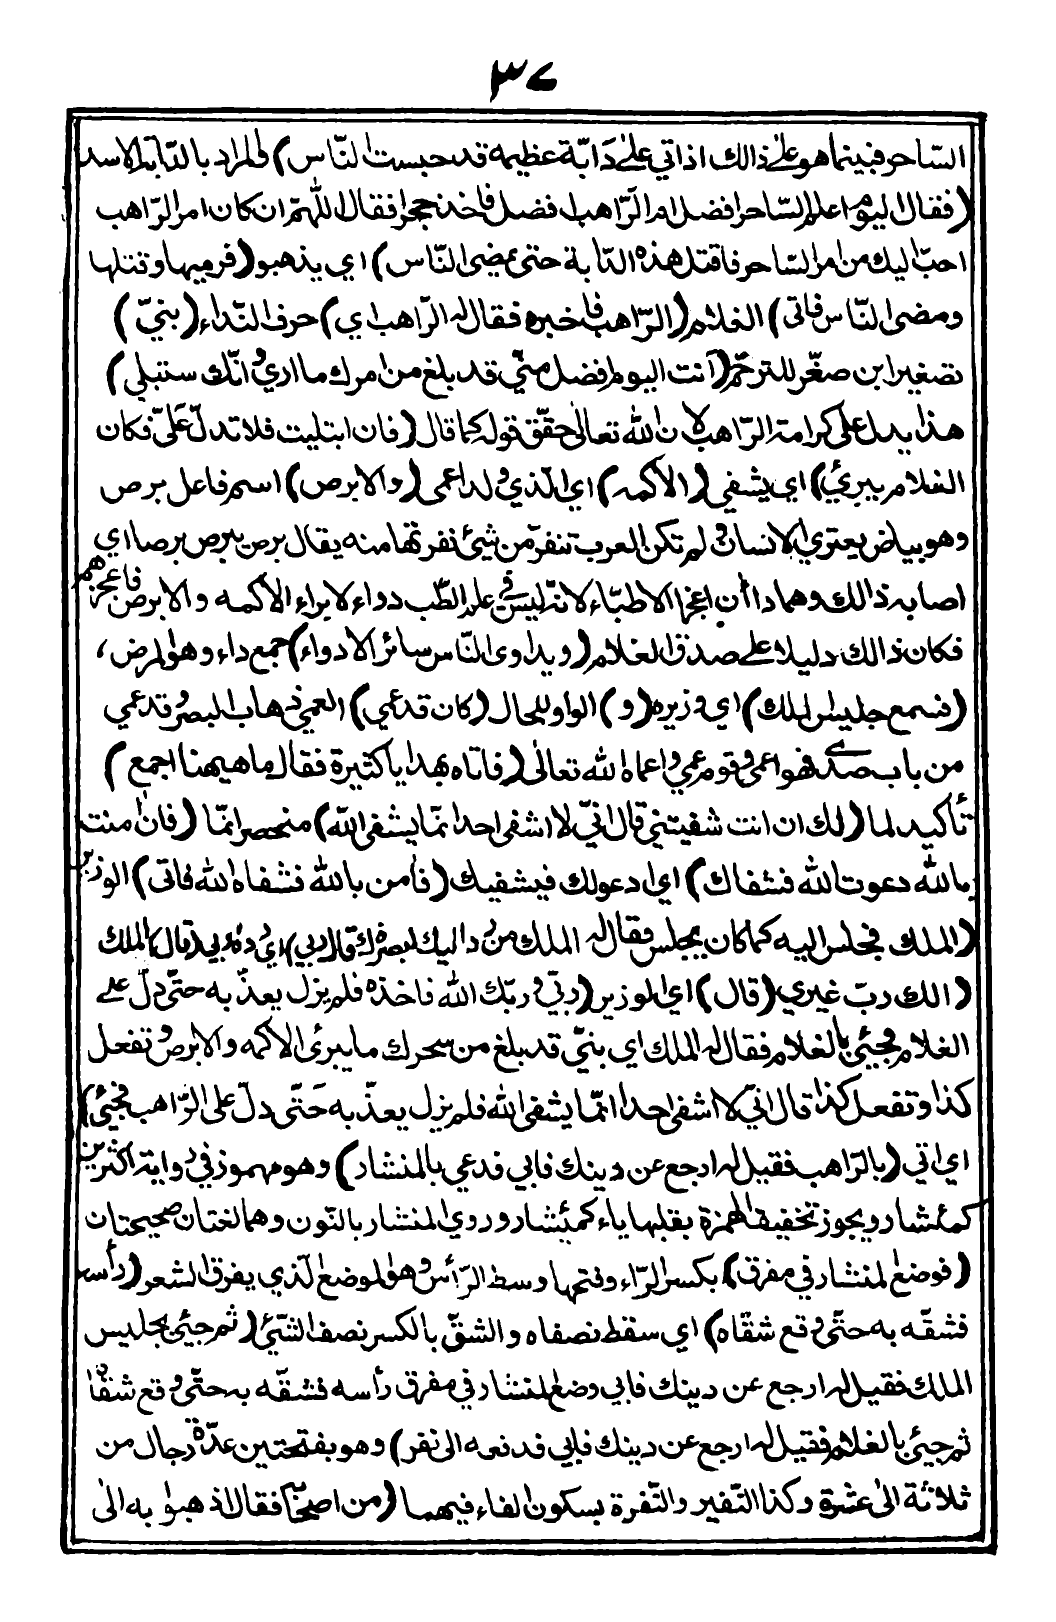 ٣٧
السّاحر فبينما هو على ذالك اذ اتي على دَابّة عظيمة قد حبست النّاس) والمراد بالدّابة الاسد
(فقال اليوم اعلم السّاحر افضل ام الرّاهب افضل فاخذ حجرا فقال اللّهمّ ان كان امر الرّاهب
احبّ اليك من امر السّاحر فاقتل هذه الدّابة حتى يمضي النّاس) اي يذهبو (فرميها وقتلها
ومضى النّاس فاتى) الغلام (الرّاهب فاخبره فقال له الرّاهب اي) حرف النّداء (بنيّ)
تصغير ابن صغّر للترحّم (اَنت اليوم افضل منّي قد بلغ من امرك ما اري وانّك ستبتلي)
هذا يدل على كرامة الرّاهب لان الله تعالى حقّق قوله كما قال (فان ابتليت فلا تدلّ عَليّ فكان
الغلام يبرئ) اي يشفي (الاكمه) اي الّذي ولد اعمى (والابرص) اسم فاعل برص
وهو بياض يعتري الانسان ولم تكن العرب تنفر من شئ نفرتها منه يقال برص يبرص برصا اي
اصابه ذالك وهما داأن اعجزا الاطبّاء لانه ليس في علم الطّب دواء لابراء الاكمه والابرص فاعجزهم
فكان ذالك دليلا على صدق الغلام (ويداوى النّاس سائر الادواء) جمع داء وهو المرض،
(فسمع جليس الملك) اي وزيره (و) الواو للحال (كان قد عمي) العمي ذهاب البصر وقد عمي
من باب صدي فهو اعمى وقوم عمي واعماه الله تعالى (فاتاه بهدايا كثيرة فقال ما هيهنا اجمع)
تأكيد لما (لك ان انت شفيتني قال انّي لا اشفي احدا انّما يشفي الله) منحصر انمّا (فان اٰمنت
بالله دعوت الله فشفاك) اي ادعو لك فيشفيك (فاٰمن بالله فشفاه الله فاتى) الوزير
(الملك فجلس اليه كما كان يجلس فقال له الملك من رد اليك بصرك قال ربي) اي رده ربي (قال) الملك
(الك ربّ غيري (قال) اي الوزير (ربّي وربّك الله فاخذه فلم يزل يعذّبه حتّى دلّ على
الغلام فجيئ بالغلام فقال له الملك اي بنيّ قد بلغ من سحرك ما يبرئ الاكمه والابرص وتفعل
كذا وتفعل كذا قال انّي لا اشفي احدا انمّا يشفي الله فلم يزل يعذّبه حَتّى دلّ على الرّاهب فجيئ)
اي اتي (بالرّاهب فقيل له ارجع عن دينك فابي فدعي بالمنشار) وهو مهموز في رواية اكثرين
كمئشار ويجوز تخفيف الهمزة بقلبها ياء كميشار وروي المنشار بالنّون وهما لغتان صحيحتان
(فوضع المنشار في مفرق) بكسر الرّاء وفتحها وسط الرّأس وهو الموضع الّذي يفرق الشعر (رأسه
فشقّه به حتّى وقع شقّاه) اي سقط نصفاه والشقّ بالكسر نصف الشّئ (ثم جيئ بجليس
الملك فقيل له ارجع عن دينك فابي وضع المنشار في مفرق رأسه فشقّه به حتّى وقع شقّاه
ثم جيئ بالغلام فقيل له ارجع عن دينك فابي فدفعه الى نفر) وهو بفتحتين عدّة رجال من
ثلاثة الى عشرة وكذا النّفير والنّفرة بسكون الفاء فيهما (من اصحابه فقال اذهبوا به الى